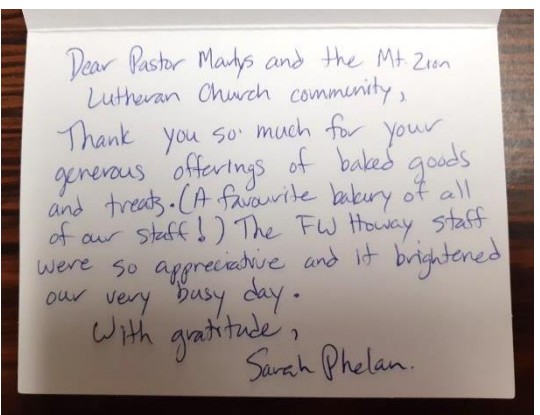 Dear Pastor Marlys and the Mt. Zion
Lutheran Church community,
Thank you so much for your
generous offerings of baked goods
and treats. (A favourite bakery of all
of our staff!) The FW Howay staff
were so appreciative and it brightened
our very busy day.
With gratitude,
Sarah Phelan.